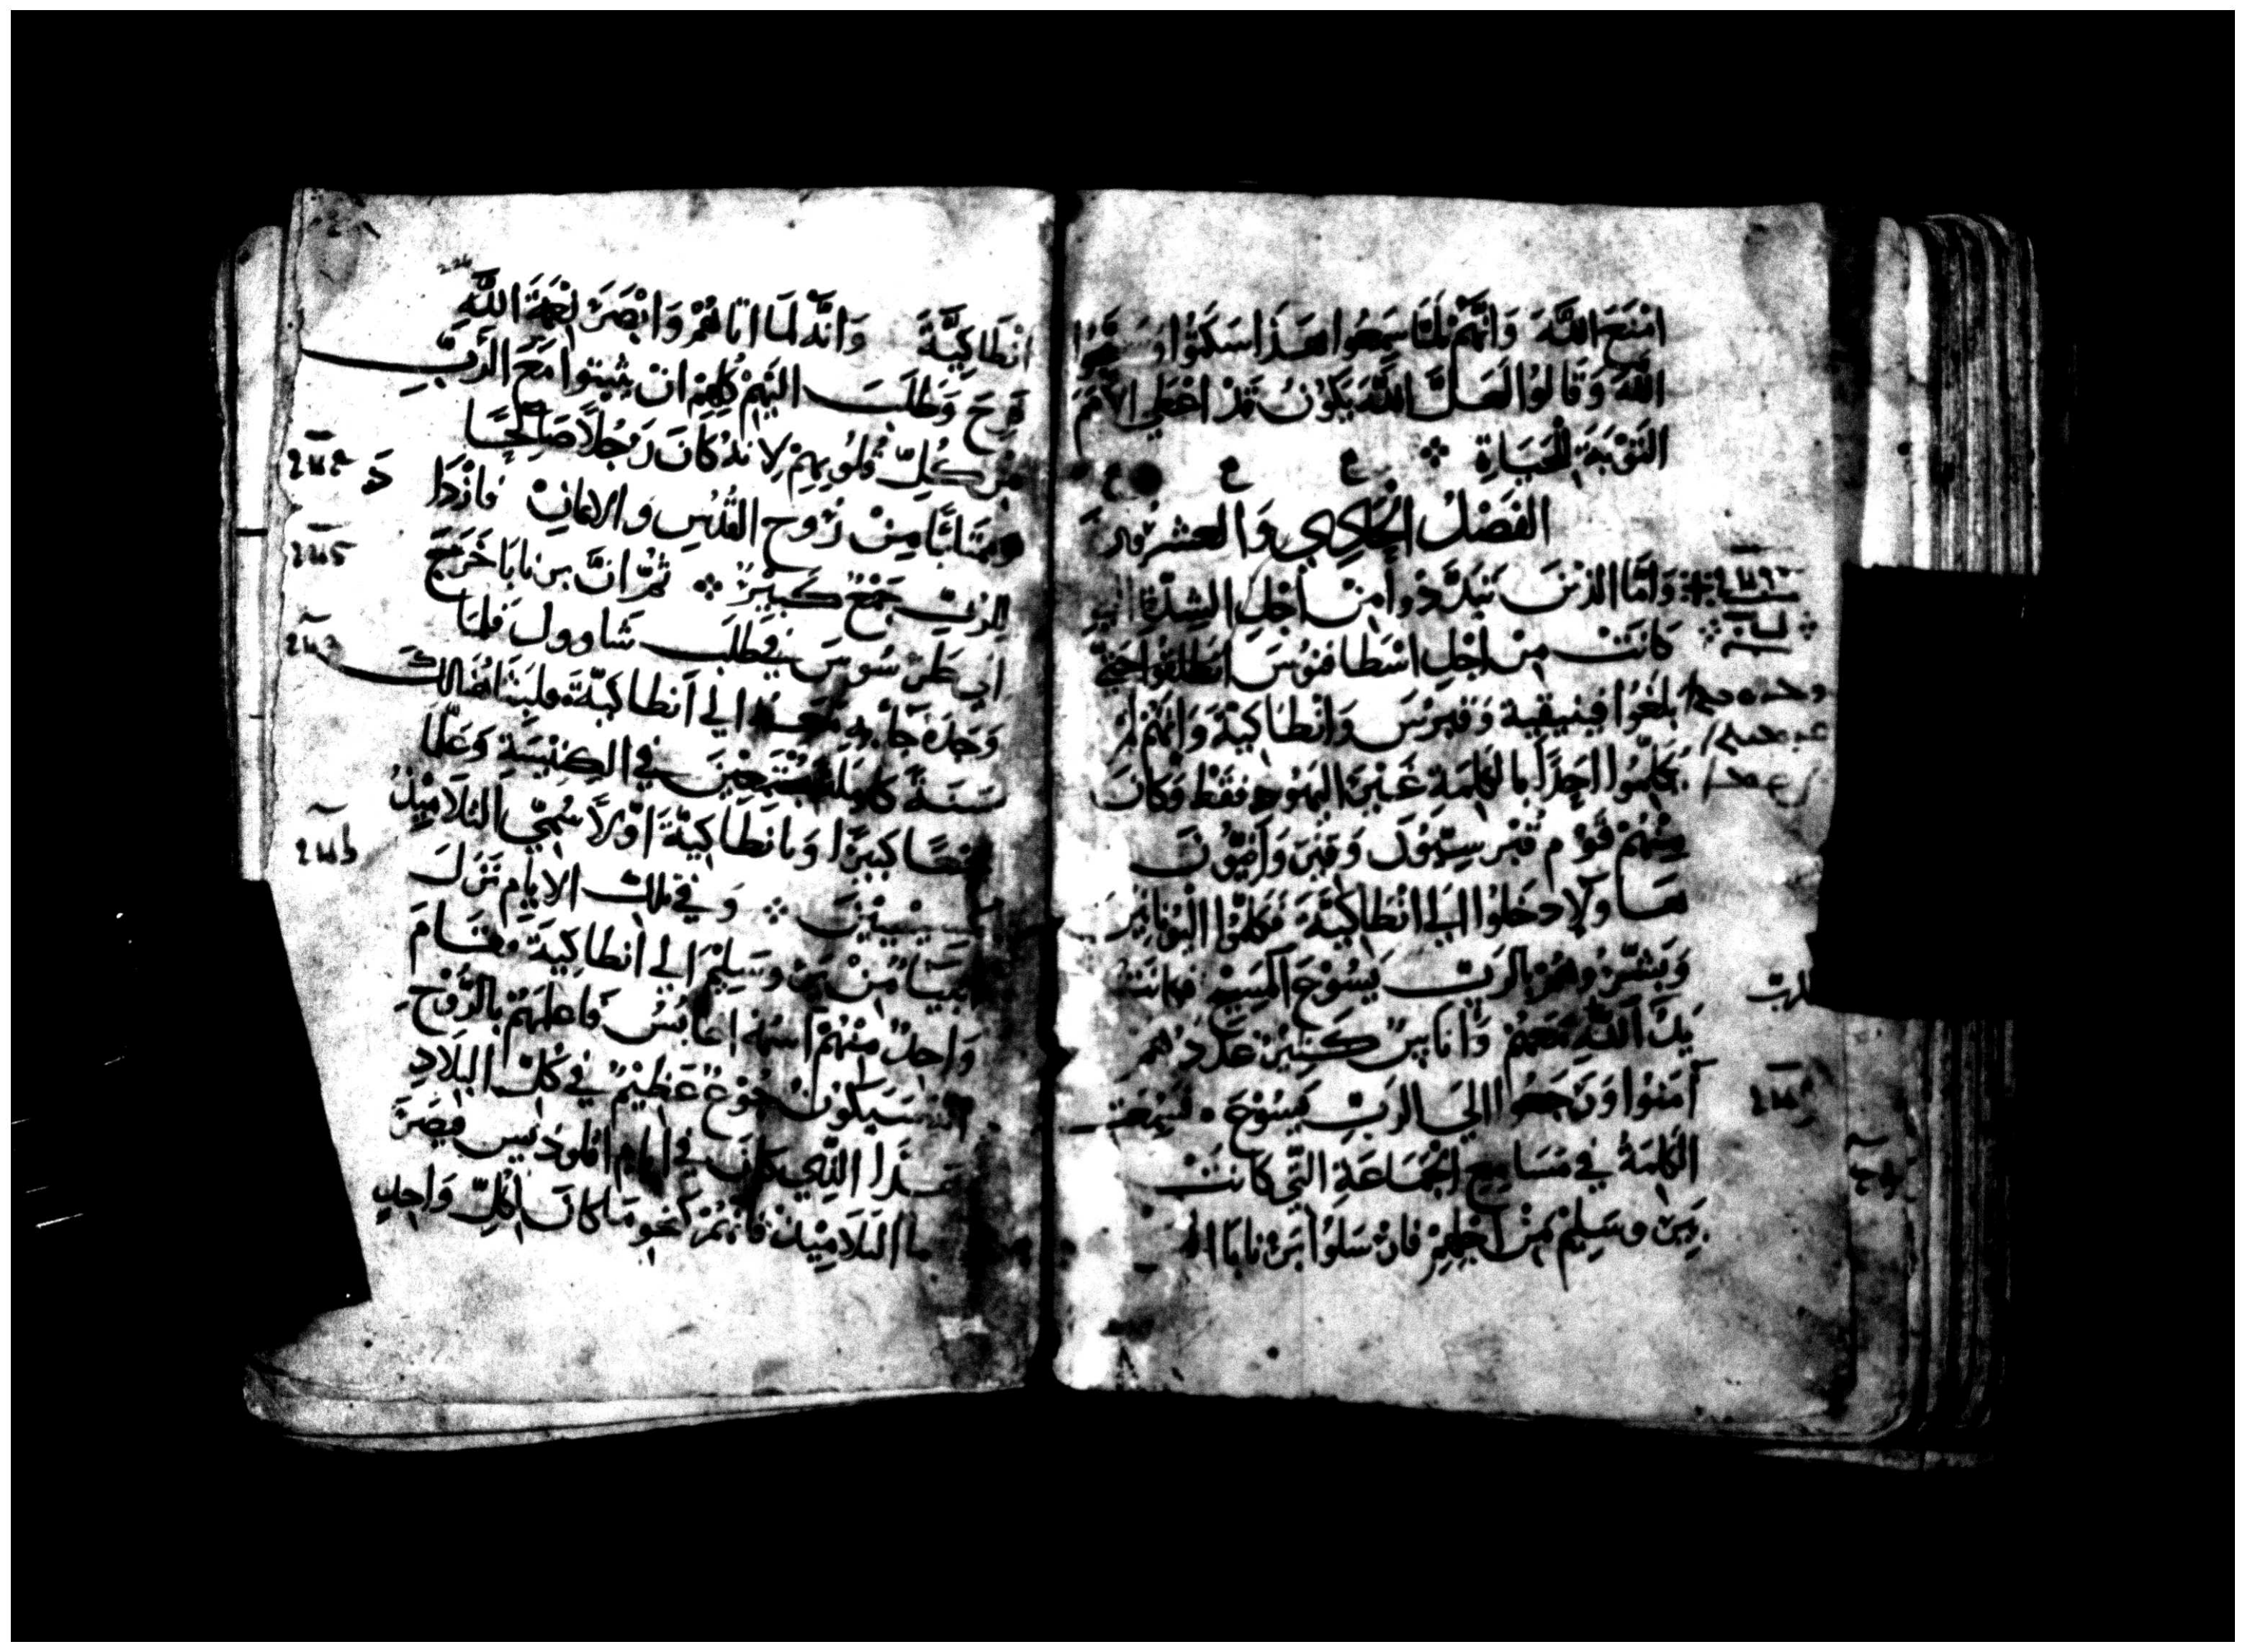 امنع الله وانهم لما سمعوا هذا سكتوا وسبحوا
الله وقالوا لعل الله يكون قد اعطي الامم
التوبة للحياة
الفصل الحادي والعشرون
واما الذين تبددوا من اجل الشدة التي
كانت من اجل اسطافنوس انطلقوا حتي
بلغوا فينيقية وقبرس وانطاكية وانهم لم
يكلموا احدا بالكلمة غير اليهود فقط وكان
منهم قوم
دخلوا الي انطاكية فكلموا اليونانين
وبشروهم بالرب يسوع المسيح فكانت
يد الله معهم واناس كثير عددهم
آمنوا ورجعوا الي الرب يسوع فسمعت
الكلمة في مسامع الجماعة التي كانت
بيروسليم من اجلهم فارسلوا برنابا الي
انطاكية وانه لما اتاهم وابصر نعمة الله
فرح وطلب اليهم كلهم ان يثبتوا مع الرب
من كل قلوبهم لانه كان رجلا صالحا
وممتليا من روح القدس والايمان فازدا
للرب جمع كبير ثم ان برنابا خرج
الي طرسوس في طلب شاوول فلما
وجده جا به معه الي انطاكية فلبثا هنالك
سنة كاملة مجتمعين في الكنيسة وعلما
جمعا كبيرا وبانطاكية اولا سمي التلاميذ
وفي تلك الايام نزل
انبيا من يروسليم الي انطاكية فقام
واحد منهم اسمه اغابس فاعلمهم بالروح
انه سيكون جوع عظيم في كل البلاد
هذا الذي كان في ايام اقلوديس قيصر
التلاميذ فانهم كنحو ما كان لكل واحد